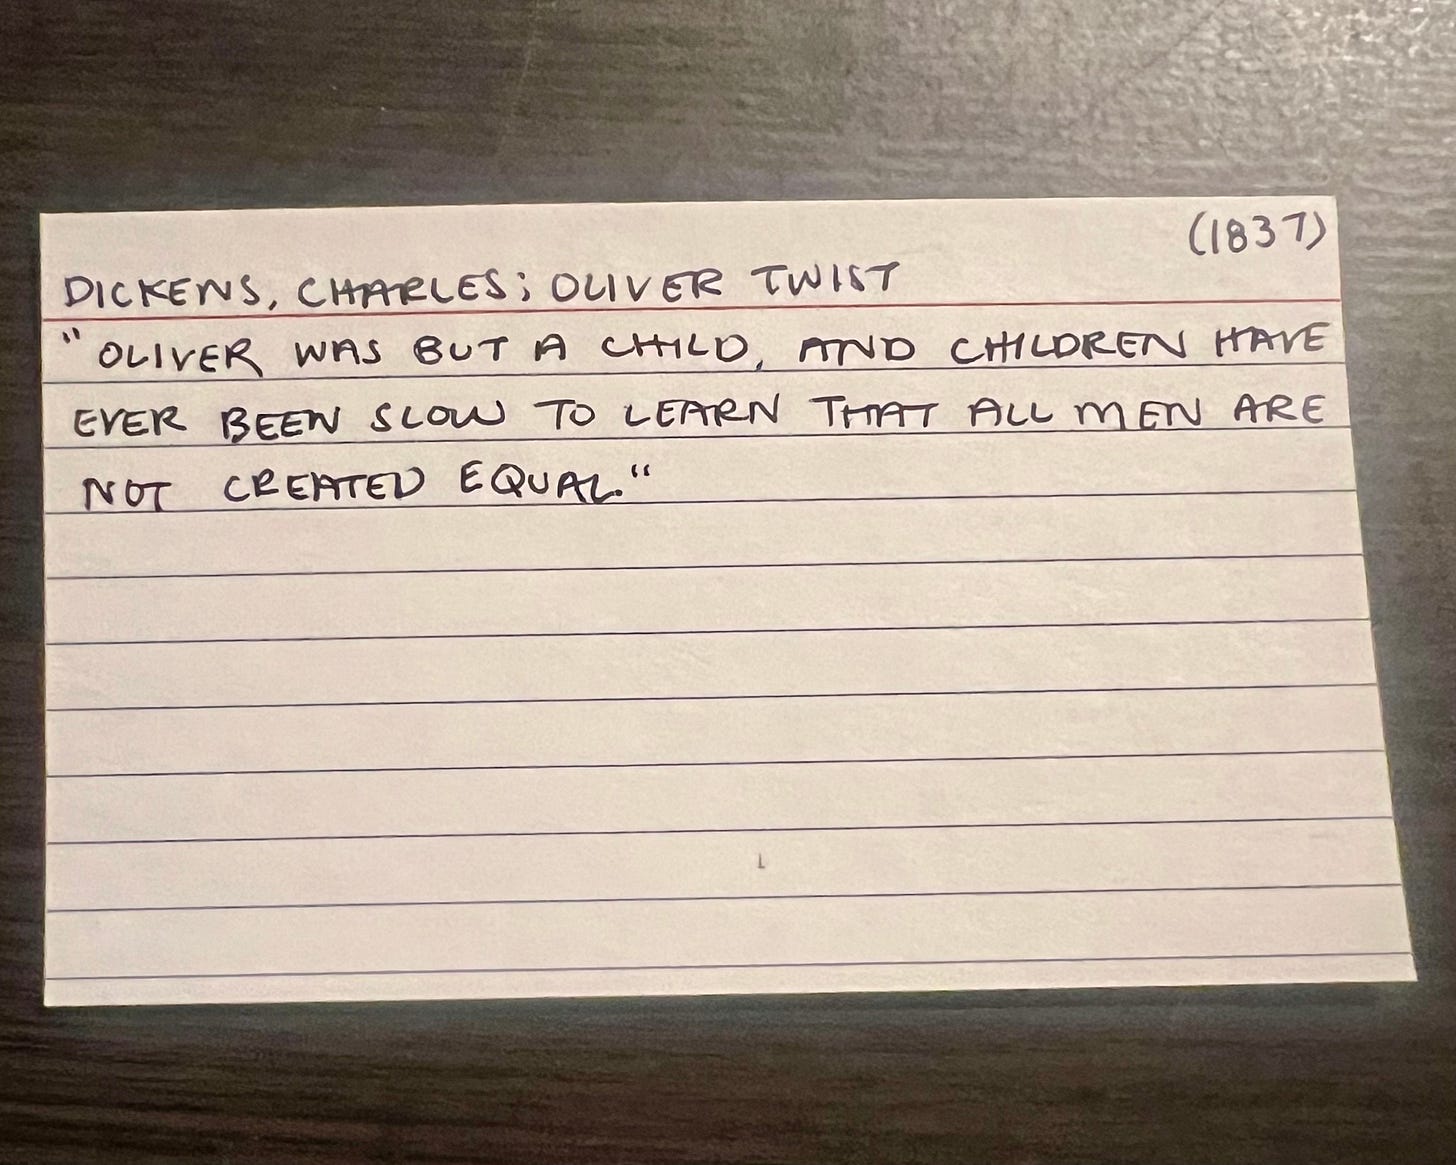 (1837)
DICKENS, CHARLES; OLIVER TWIST
"OLIVER WAS BUT A CHILD, AND CHILDREN HAVE
EVER BEEN SLOW TO LEARN THAT ALL MEN ARE
NOT CREATED EQUAL."